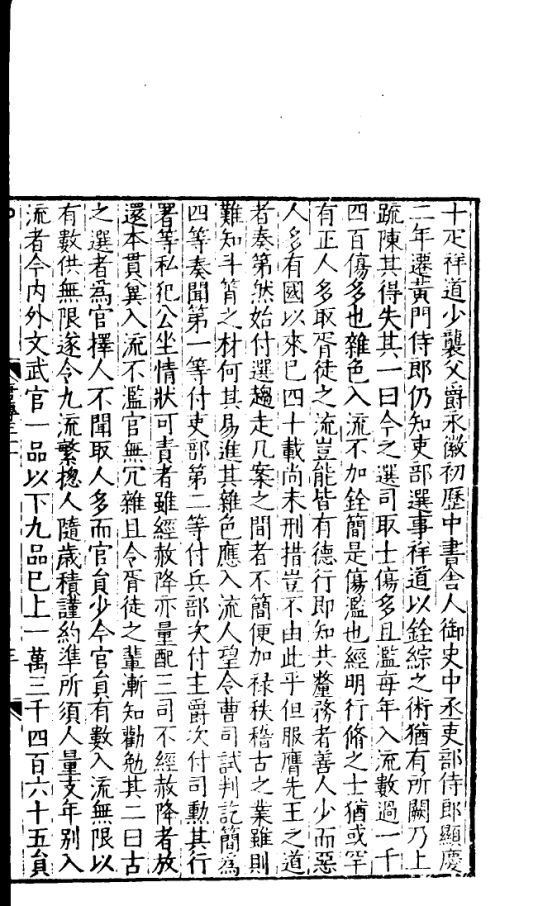 十疋祥道少襲父爵永徽初歷中書舍人御史中丞吏部侍郎顯慶
二年遷黃門侍郎仍知吏部選事祥道以銓綜之術猶有所闕乃上
疏陳其得失其一曰今之選司取士傷多且濫每年入流數過一千
四百傷多也雜色入流不加銓簡是傷濫也經明行脩之士猶或罕
有正人多取胥徒之流豈能皆有德行即知共釐務者善人少而惡
人多有國以來已四十載尚未刑措豈不由此乎但服膺先王之道
者奏第然始付選趨走几案之間者不簡便加祿秩稽古之業雖則
難知斗筲之材何其易進其雜色應入流人望令曹司試判訖簡為
四等奏聞第一等付吏部第二等付兵部次付主爵次付司勳其行
署等私犯公坐情狀可責者雖經赦降亦量配三司不經赦降者放
還本貫冀入流不濫官無冗雜且令胥徒之輩漸知勸勉其二曰古
之選者為官擇人不聞取人多而官員少今官員有數入流無限以
有數供無限遂令九流繁揔人隨歲積謹約準所須人量支年別入
流者今內外文武官一品以下九品已上一萬三千四百六十五員